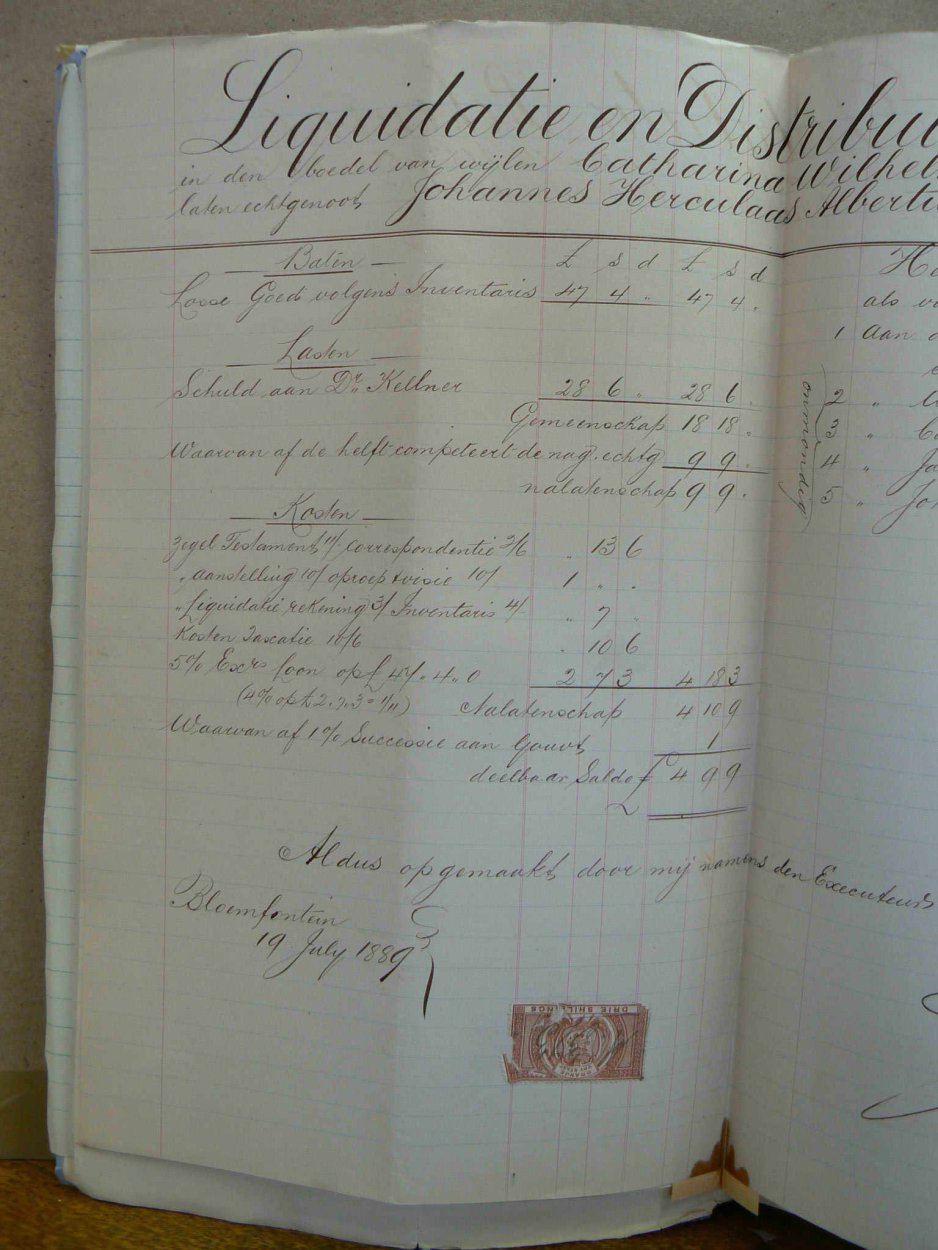 Liquidatie en Distribu
in den boedel van wijlen Catharina Wilhel
laten echtgenoot Johannes Herculaas Albertu
Baten £ s d £ s d
Losse Goed volgens Inventaris 47 4 " 47 4 "
Lasten
Schuld aan Dr. Kellner 28 6 " 28 6 "
Gemeenschap 18 18 "
Waarvan af de helft competeert de nag. echtg 9 9 "
nalatenschap 9 9 "
Kosten
Zegel Testament 1/ correspondentie 2/6 " 13 6
" aanstelling 10/ oproep & visie 10/ 1 " "
" liquidatie rekening 3/ Inventaris 4/ " 7 "
Kosten Taxatie 10/6 " 10 6
5% Exrs loon op £ 47 " 4 " 0 2 7 3 4 18 3
(4% op £ 2.7.3 = 1/11) Nalatenschap 4 10 9
Waarvan af 1% Successie aan Gouvt 1
deelbaar Saldo £ 4 9 9
Aldus opgemaakt door mij namens den Executeur
Bloemfontein
19 July 1889
DRIE SHILLINGS
ORANJE
als vo
1 Aan d
2 "
3 "
4 " Ja
5 " Jo
onmondig